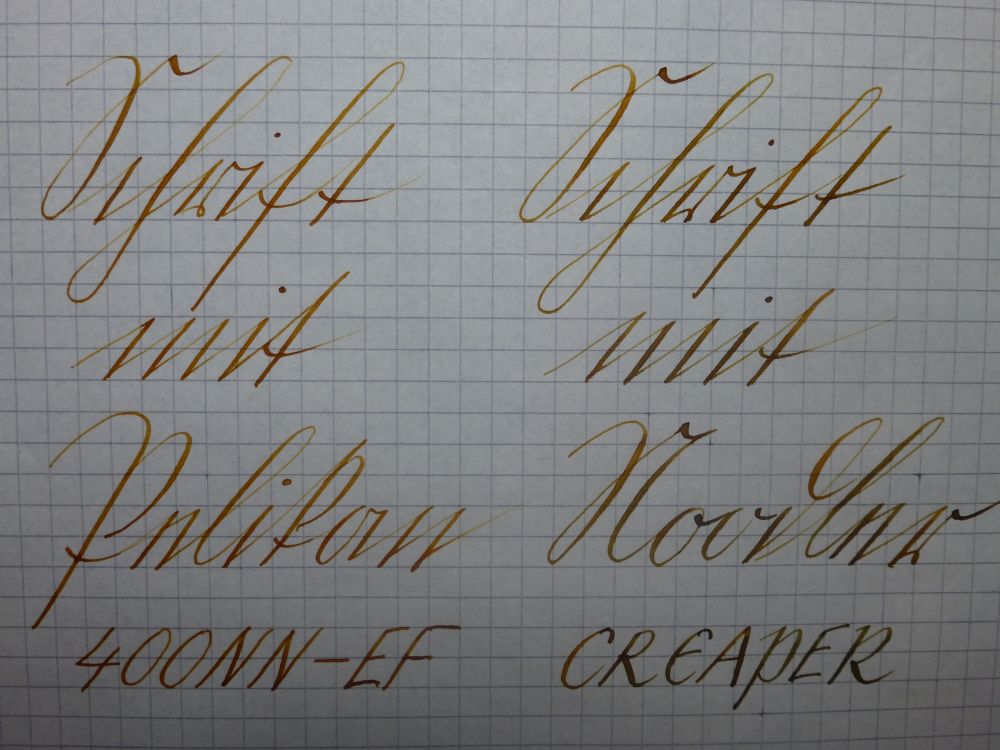 Schrift
mit
Pelikan
400NN-EF
Schrift
mit
Noodler
CREAPER